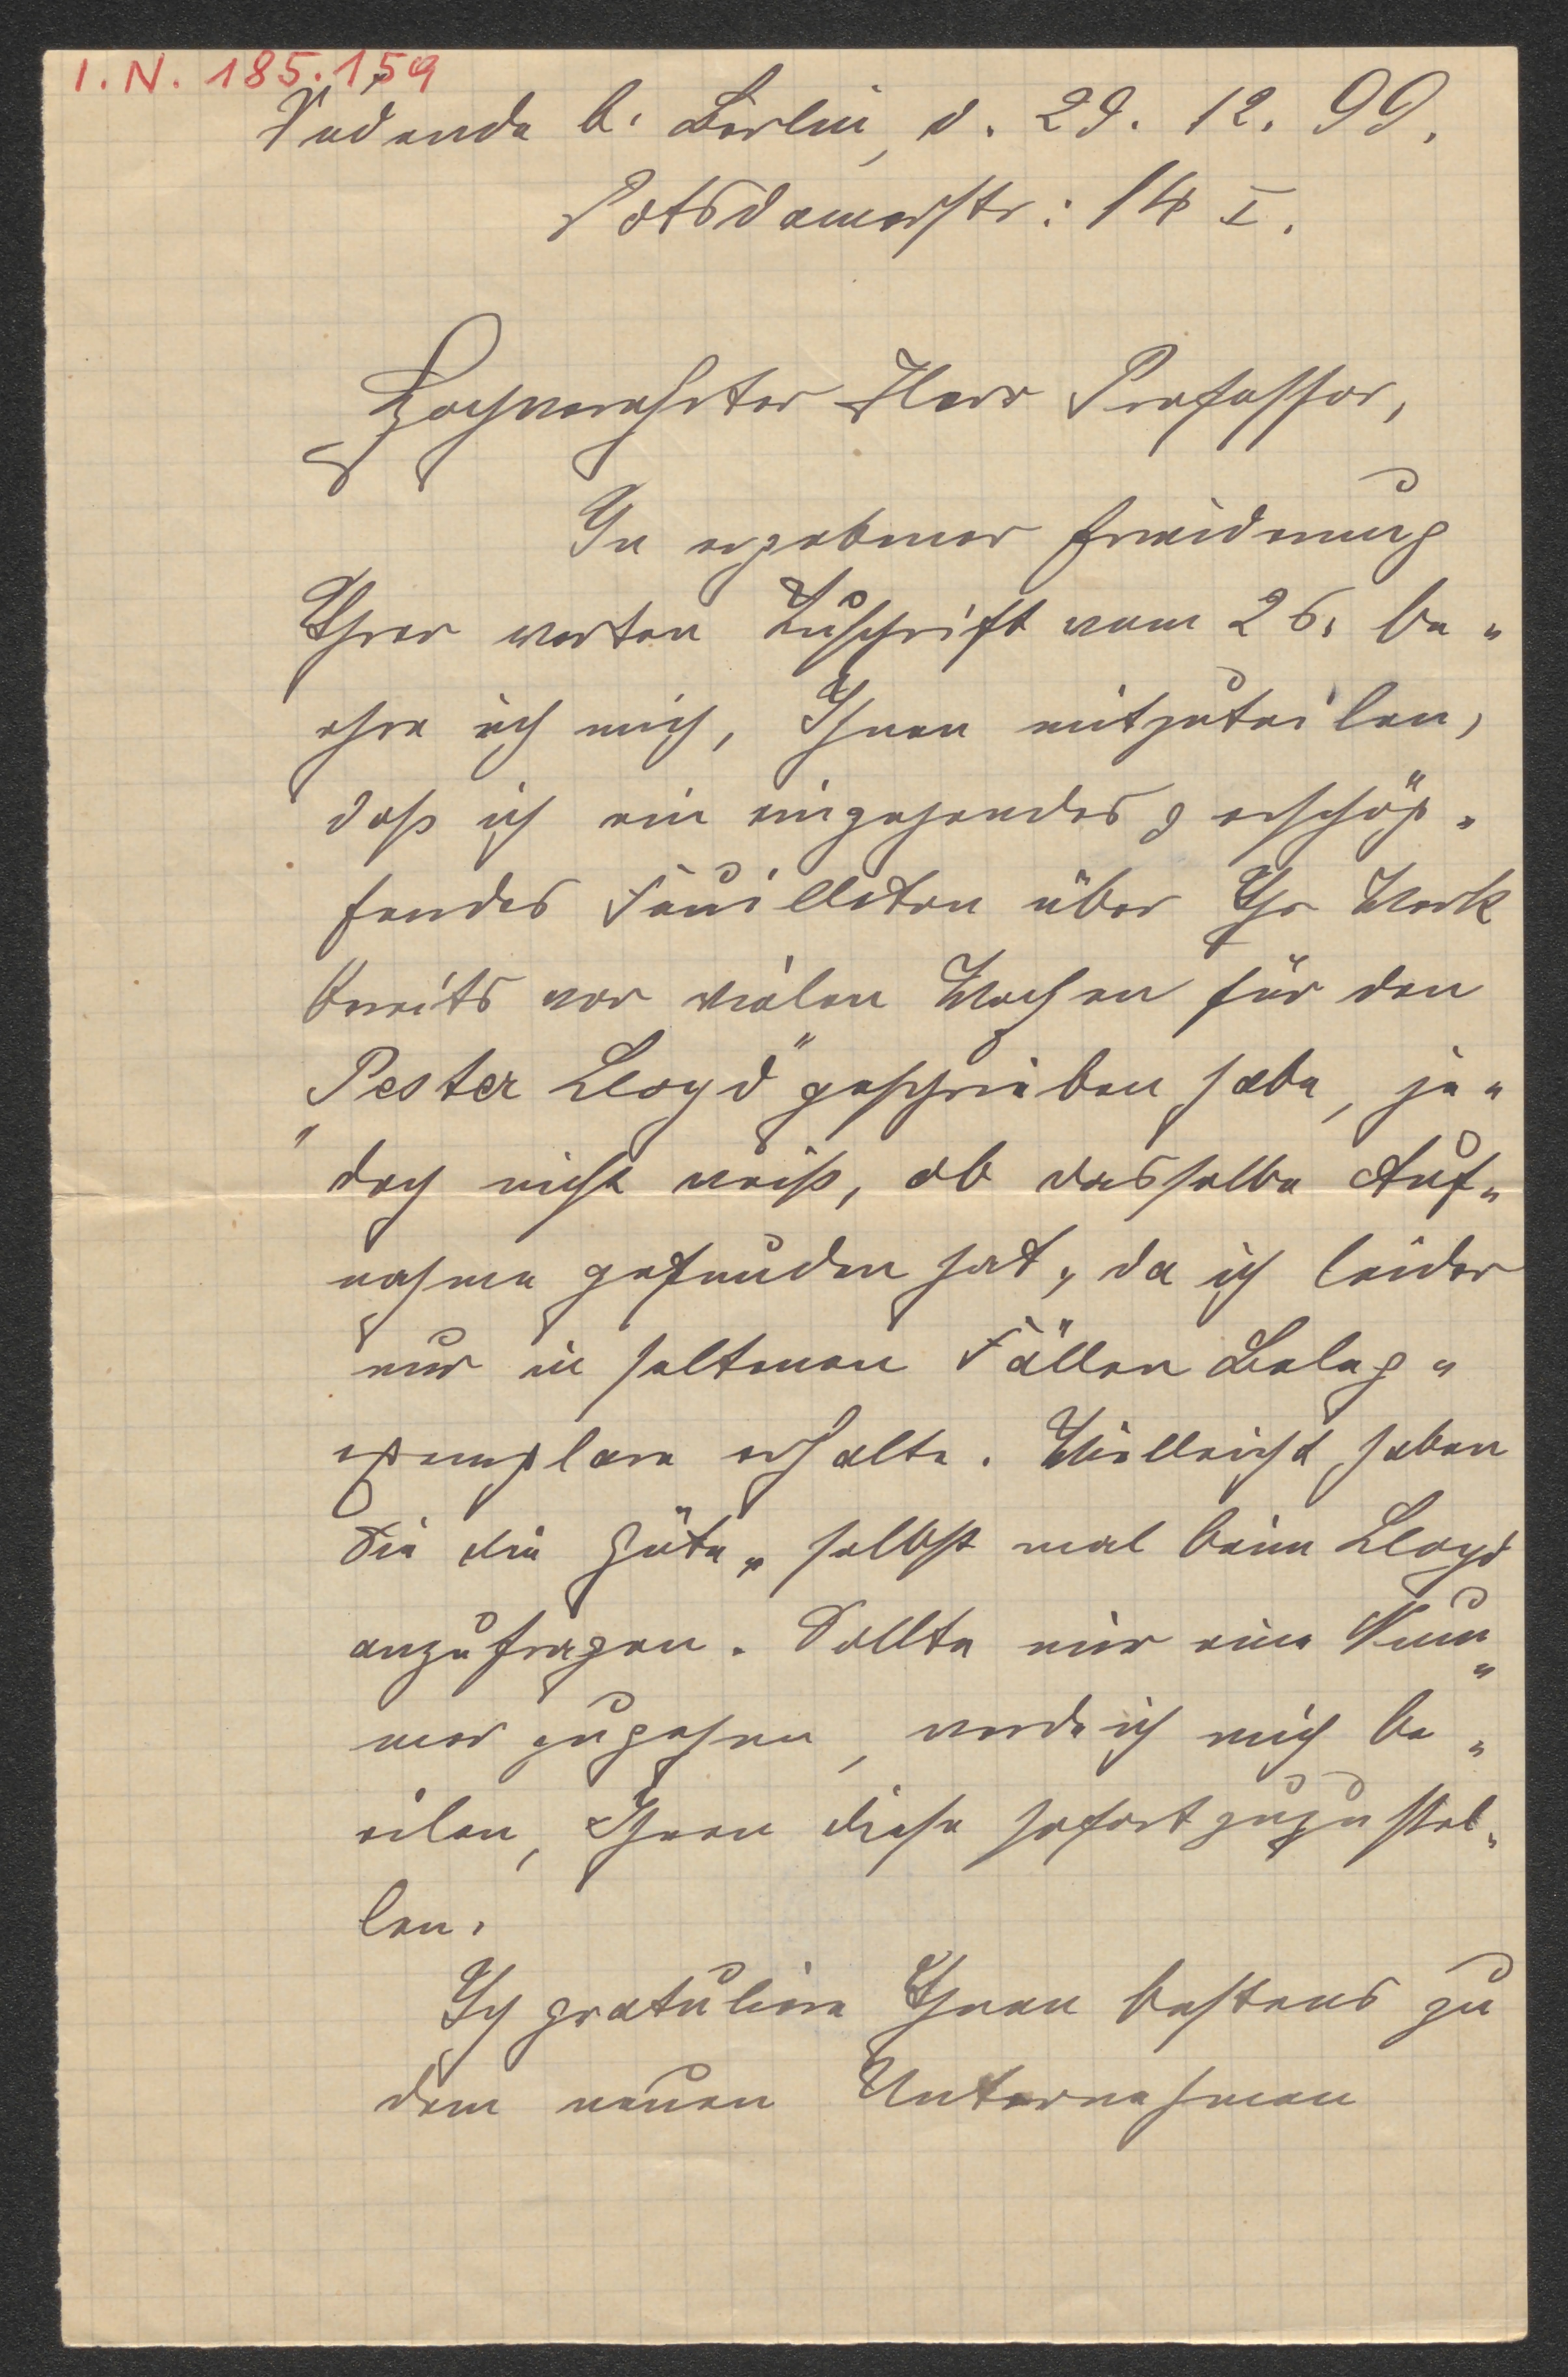 I. N. 185.159
Südende b. Berlin, d. 29. 12. 99.
Potsdamerstr: 14 I.
Hochverehrter Herr Professor,
In ergebener Erwiderung
Ihrer werten Zuschrift vom 26. be-
ehre ich mich, Ihnen mitzuteilen,
daß ich ein eingehendes & erschöp-
fendes Feuilleton über Ihr Werk
bereits vor vielen Wochen für den
„Pester Lloyd" geschrieben habe, je-
doch nicht weiß, ob dasselbe Auf-
nahme gefunden hat, da ich leider
nur in seltenen Fällen Beleg-
exemplare erhalte. Vielleicht haben
Sie die Güte, selbst mal beim Lloyd
anzufragen. Sollte mir eine Num-
mer zugehen, werde ich mich be-
eilen, Ihnen diese sofort zuzustel-
len.
Ich gratuliere Ihnen bestens zu
dem neuen Unternehmen